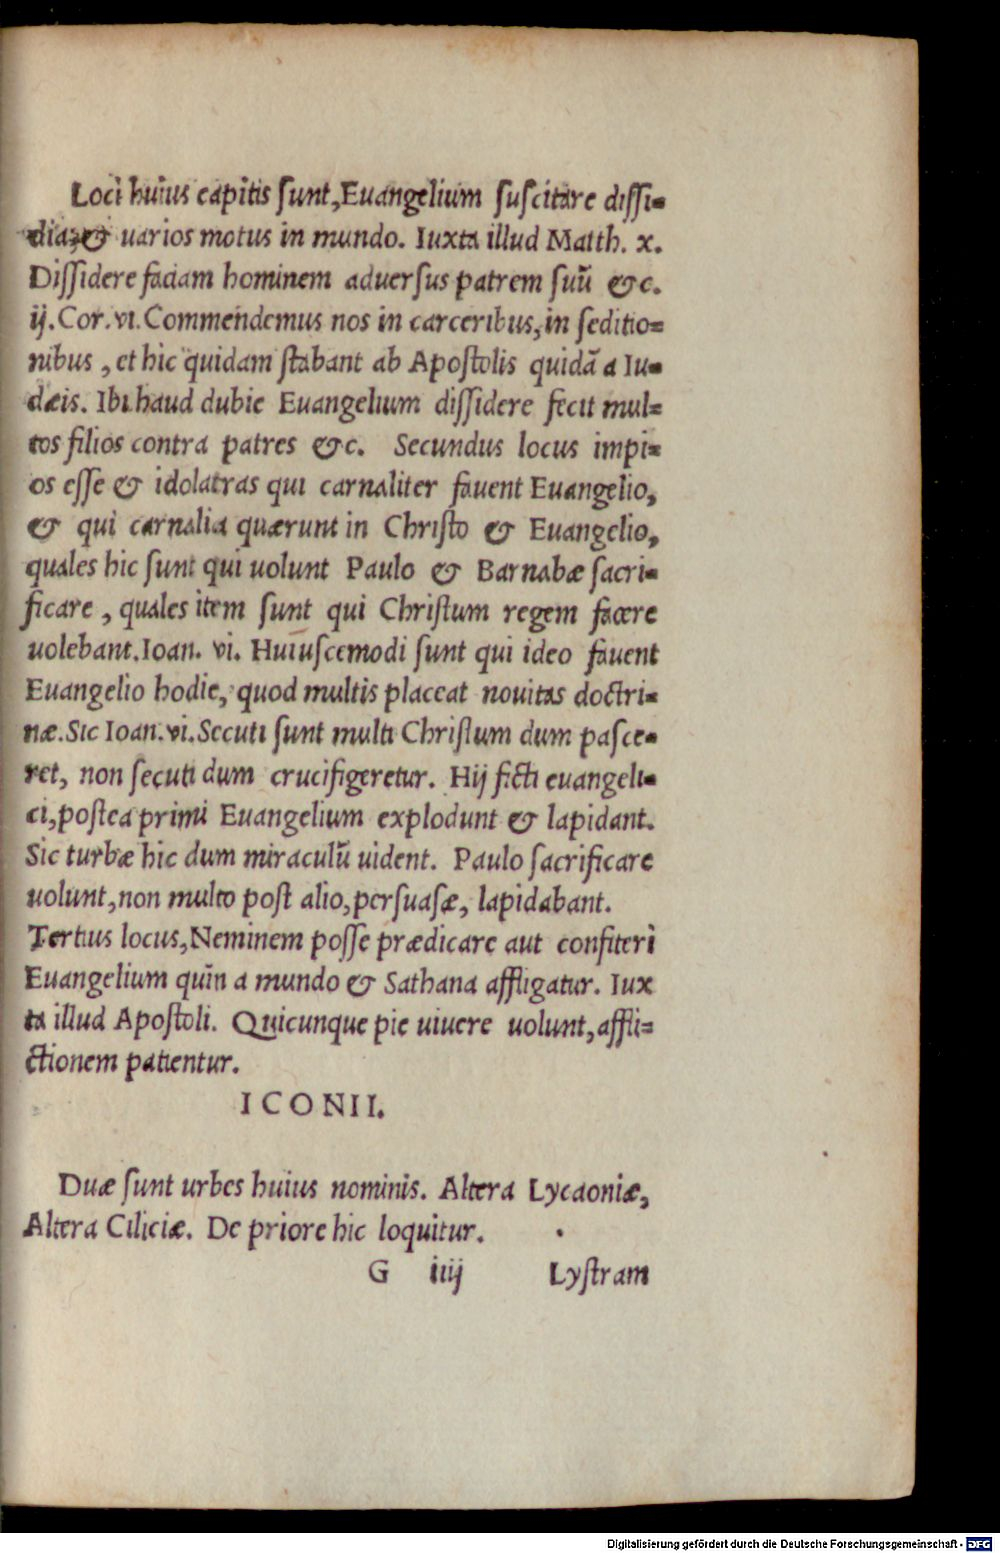 Loci huius capitis sunt, Euangelium suscitare dissi-
dia, & uarios motus in mundo. Iuxta illud Matth. x.
Dissidere faciam hominem aduersus patrem suū &c.
ij. Cor. vi. Commendemus nos in carceribus, in seditio-
nibus, et hic quidam stabant ab Apostolis quidā a Iu-
dæis. Ibi haud dubie Euangelium dissidere fecit mul-
tos filios contra patres &c. Secundus locus impi-
os esse & idolatras qui carnaliter fauent Euangelio,
& qui carnalia quærunt in Christo & Euangelio,
quales hic sunt qui uolunt Paulo & Barnabæ sacri-
ficare, quales item sunt qui Christum regem facere
uolebant. Ioan. vi. Huiuscemodi sunt qui ideo fauent
Euangelio hodie, quod multis placeat nouitas doctri-
næ. Sic Ioan. vi. Secuti sunt multi Christum dum pasce-
ret, non secuti dum crucifigeretur. Hij ficti euangeli-
ci, postea primi Euangelium explodunt & lapidant.
Sic turbæ hic dum miraculū uident. Paulo sacrificare
uolunt, non multo post alio, persuasæ, lapidabant.
Tertius locus, Neminem posse prædicare aut confiteri
Euangelium quin a mundo & Sathana affligatur. Iux
ta illud Apostoli. Quicunque pie uiuere uolunt, affli-
ctionem patientur.
ICONII.
Duæ sunt urbes huius nominis. Altera Lycaoniæ,
Altera Ciliciæ. De priore hic loquitur.
G iiij Lystram
Digitalisierung gefördert durch die Deutsche Forschungsgemeinschaft - DFG